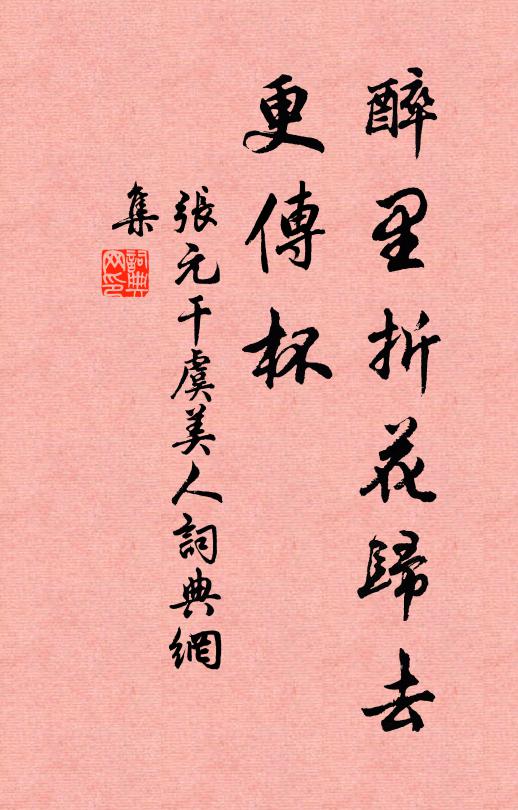 醉里折花歸去
更傳杯
張元干虞美人詞典網
集
詞典
网印